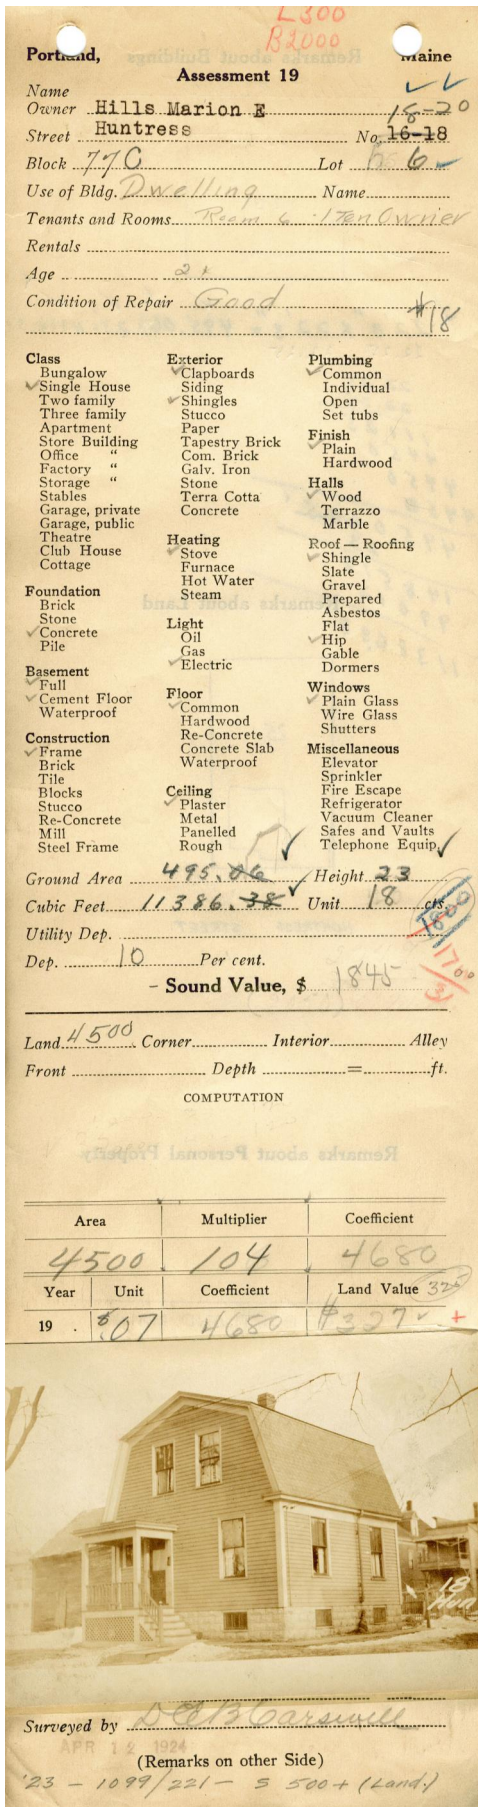 L300
B2000
Portland, Maine
Assessment 19
Name
Owner Hills Marion E 18-20
Street Huntress No. 16-18
Block 77C Lot 6
Use of Bldg. Dwelling Name
Tenants and Rooms Room 6 1 Ten Owner
Rentals
Age 2+
Condition of Repair Good $18
Class
Bungalow
Single House
Two family
Three family
Apartment
Store Building
Office "
Factory "
Storage "
Stables
Garage, private
Garage, public
Theatre
Club House
Cottage
Foundation
Brick
Stone
Concrete
Pile
Basement
Full
Cement Floor
Waterproof
Construction
Frame
Brick
Tile
Blocks
Stucco
Re-Concrete
Mill
Steel Frame
Exterior
Clapboards
Siding
Shingles
Stucco
Paper
Tapestry Brick
Com. Brick
Galv. Iron
Stone
Terra Cotta
Concrete
Heating
Stove
Furnace
Hot Water
Steam
Light
Oil
Gas
Electric
Floor
Common
Hardwood
Re-Concrete
Concrete Slab
Waterproof
Ceiling
Plaster
Metal
Panelled
Rough
Plumbing
Common
Individual
Open
Set tubs
Finish
Plain
Hardwood
Halls
Wood
Terrazzo
Marble
Roof — Roofing
Shingle
Slate
Gravel
Prepared
Asbestos
Flat
Hip
Gable
Dormers
Windows
Plain Glass
Wire Glass
Shutters
Miscellaneous
Elevator
Sprinkler
Fire Escape
Refrigerator
Vacuum Cleaner
Safes and Vaults
Telephone Equip.
Ground Area 495.06 Height 23
Cubic Feet 11386.38 Unit 18 cts.
1800
Utility Dep.
1700
Dep. 10 Per cent.
– Sound Value, $ 1845
Land 4500 Corner Interior Alley
Front Depth = ft.
COMPUTATION
Remarks about Personal Property
Area Multiplier Coefficient
4500 104 4680
Year Unit Coefficient Land Value 325
19 . $.07 4680 $327 +
18
Hun
Surveyed by
APR 12 1924
(Remarks on other Side)
'23 - 1099/221 - S 500+ (Land.)